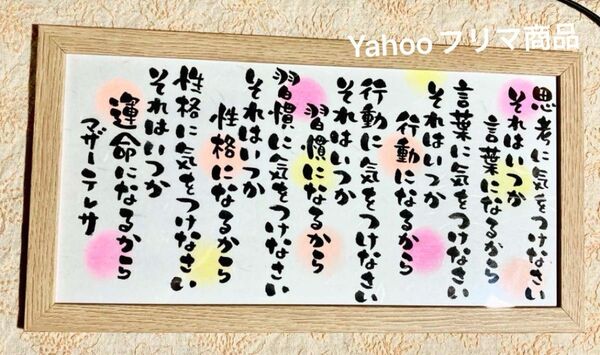 Yahooフリマ商品
思考に気をつけなさい
それはいつか
言葉になるから
言葉に気をつけなさい
それはいつか
行動になるから
行動に気をつけなさい
それはいつか
習慣になるから
習慣に気をつけなさい
それはいつか
性格になるから
性格に気をつけなさい
それはいつか
運命になるから
マザーテレサ